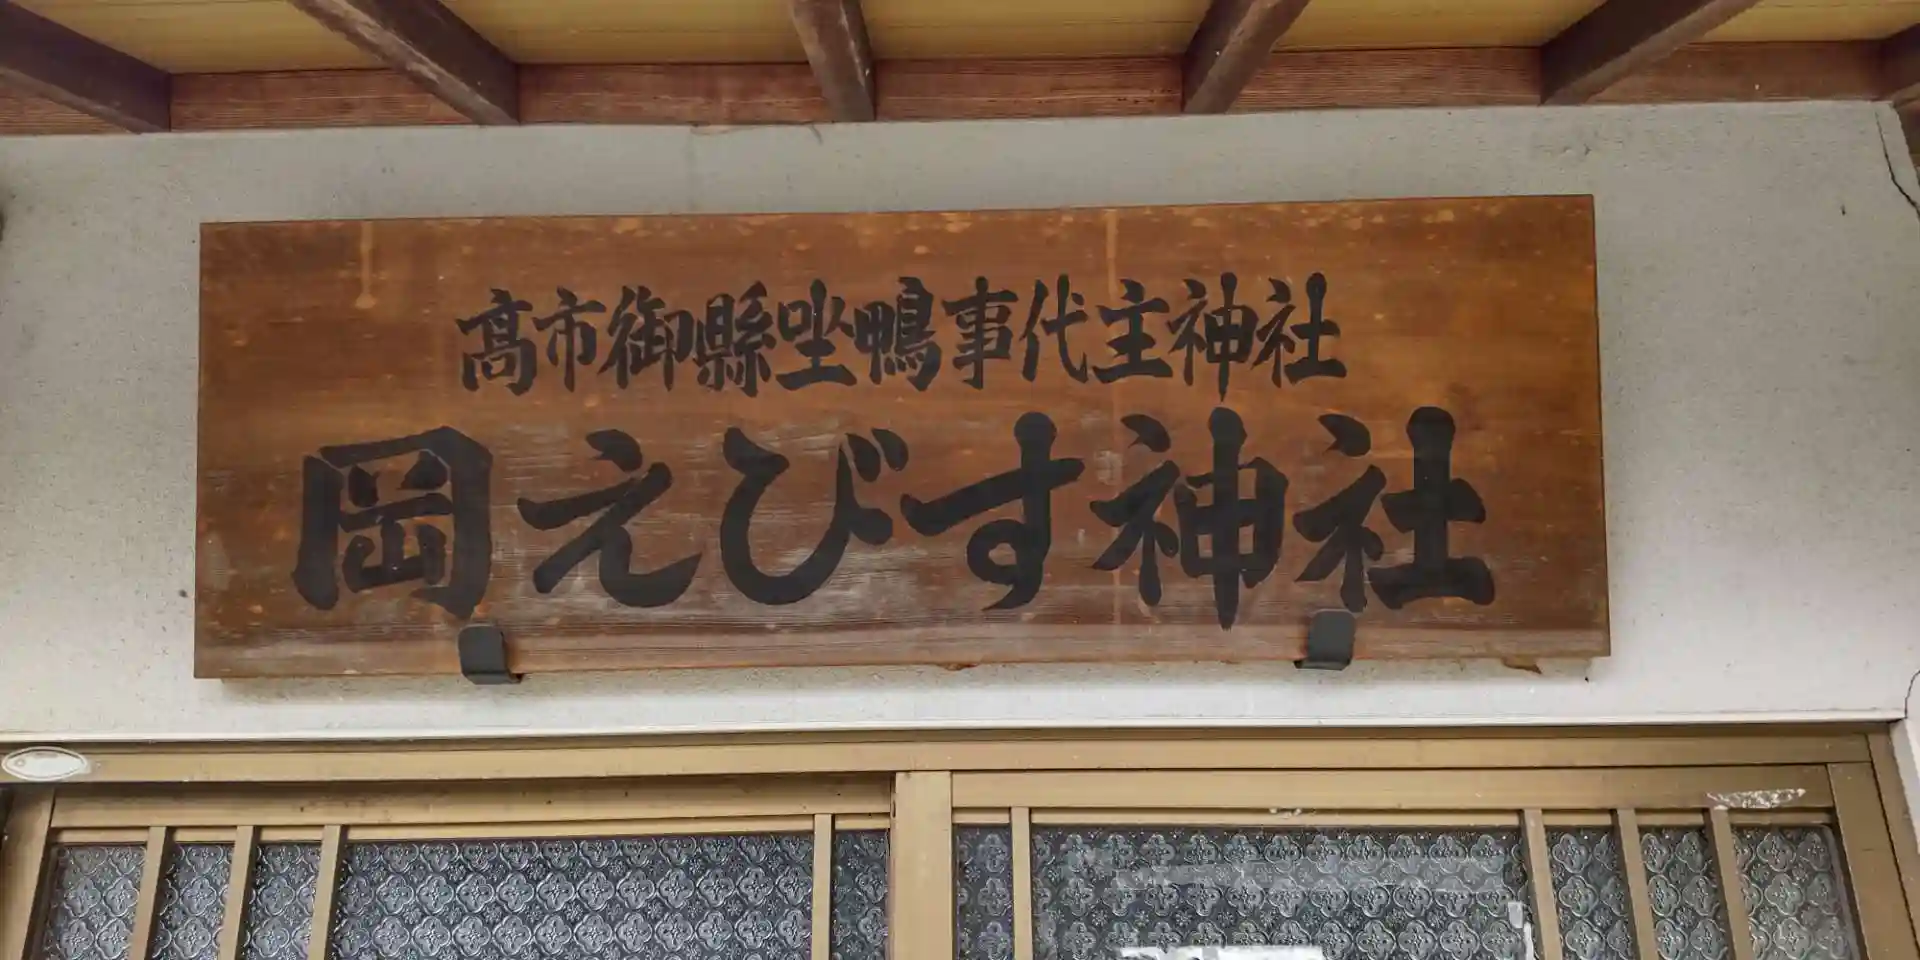 高市御縣坐鴨事代主神社
岡えびす神社